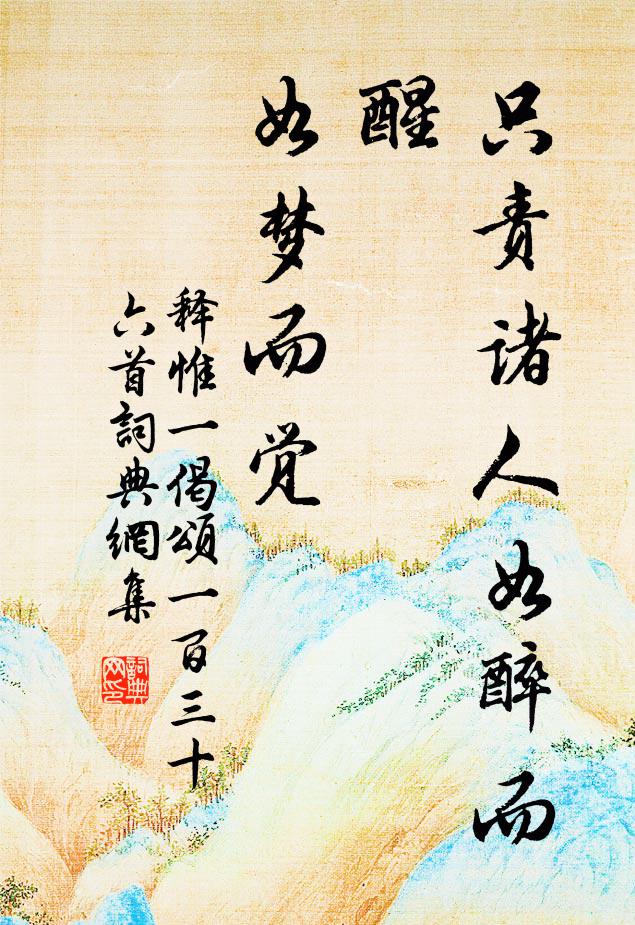 只责诸人如醉而
醒
如梦而觉
释惟一偈颂一百三十
六首詞典網集
詞典
网印